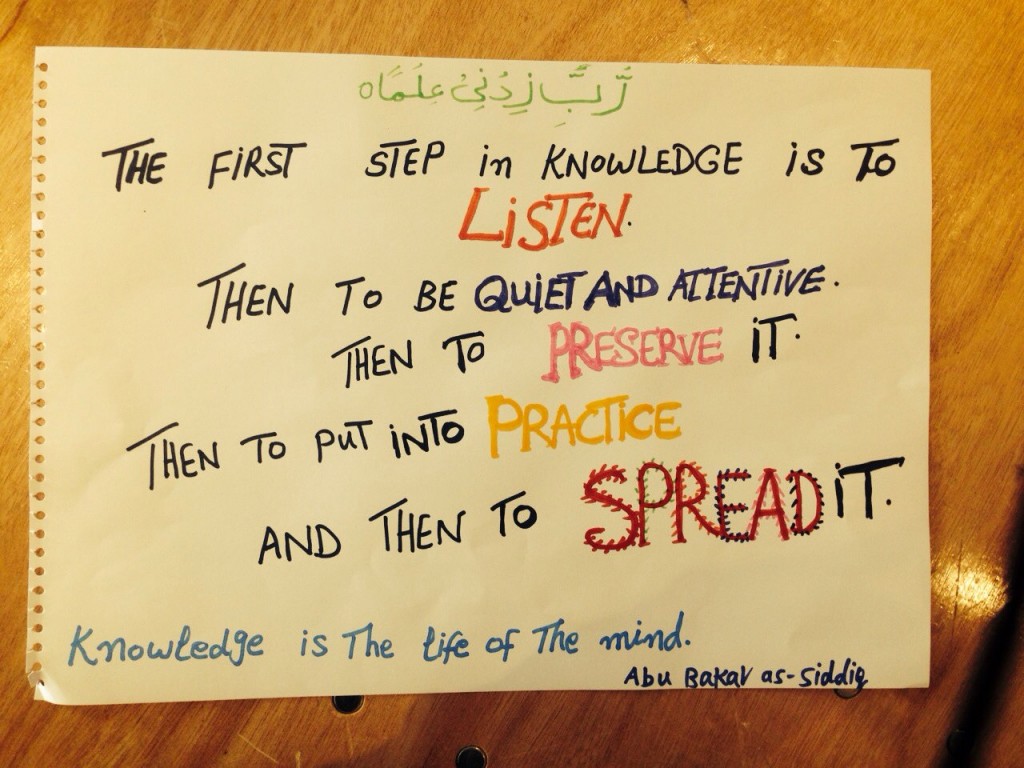 رَّبِّ زِدْنِيْ عِلْمًا٥
THE FiRST STEP in KNOWLEDGE iS TO
LiSTEN.
THEN TO BE QUiET AND ATTENTiVE.
THEN TO PRESERVE iT.
THEN TO PUT iNTO PRACTiCE
AND THEN TO SPREAD iT.
Knowledge is The life of The mind.
Abu Bakar as-Siddiq